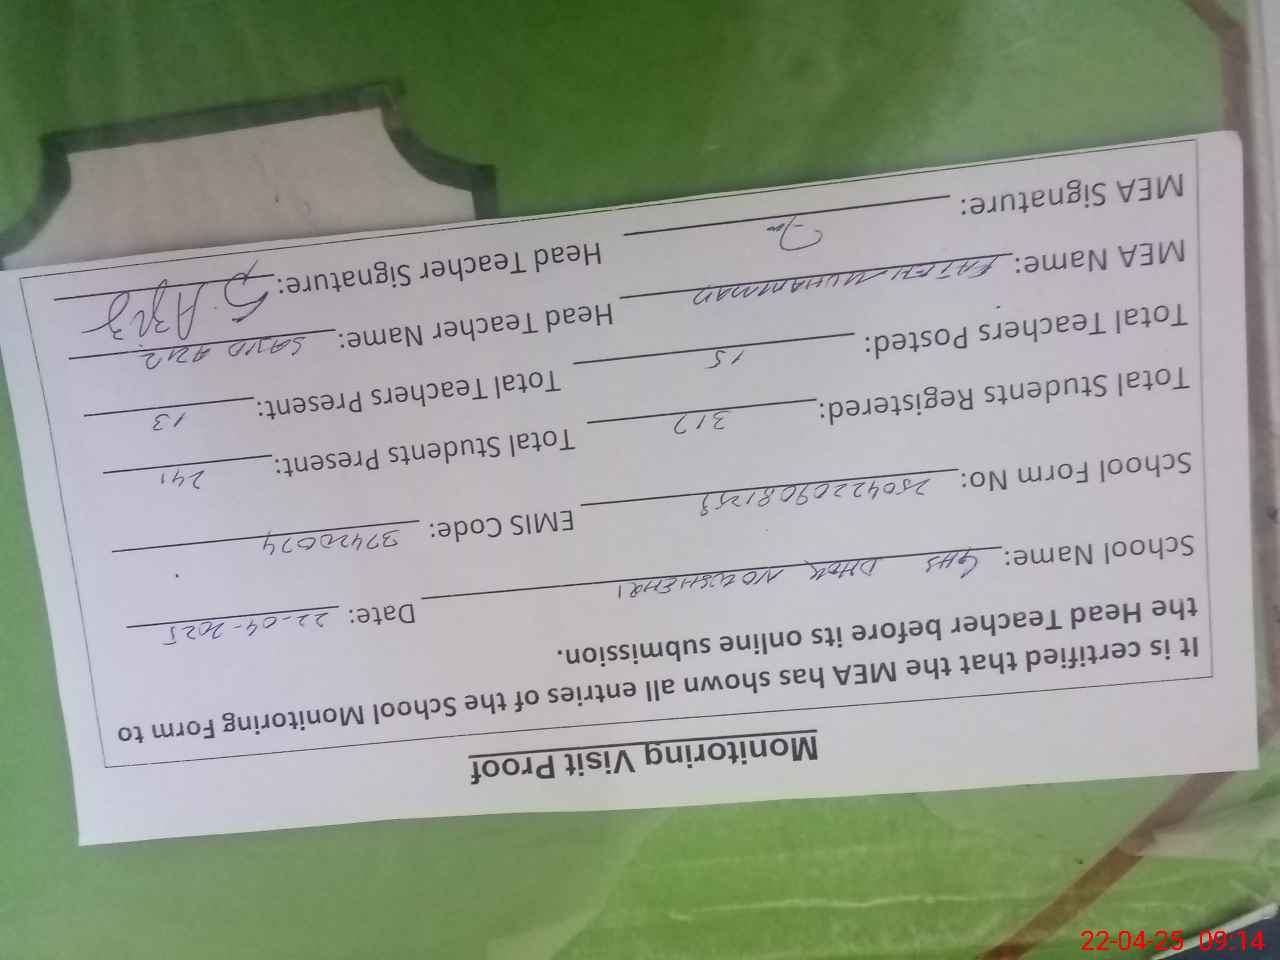 Monitoring Visit Proof
It is certified that the MEA has shown all entries of the School Monitoring Form to
the Head Teacher before its online submission.
School Name: GHS DHOK NOWSHEHRI Date: 22-04-2025
School Form No: EMIS Code: 37420074
Total Students Registered: 317 Total Students Present: 241
Total Teachers Posted: 15 Total Teachers Present: 13
MEA Name: FATEH MUHAMMAD Head Teacher Name: SAJID AZIZ
MEA Signature: Head Teacher Signature: S. Aziz
22-04-25 09:14